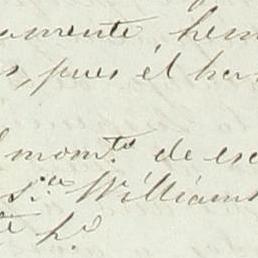 amente, hem
s, pues el her
l mom.to de esc
s.ra Williams
te h.o